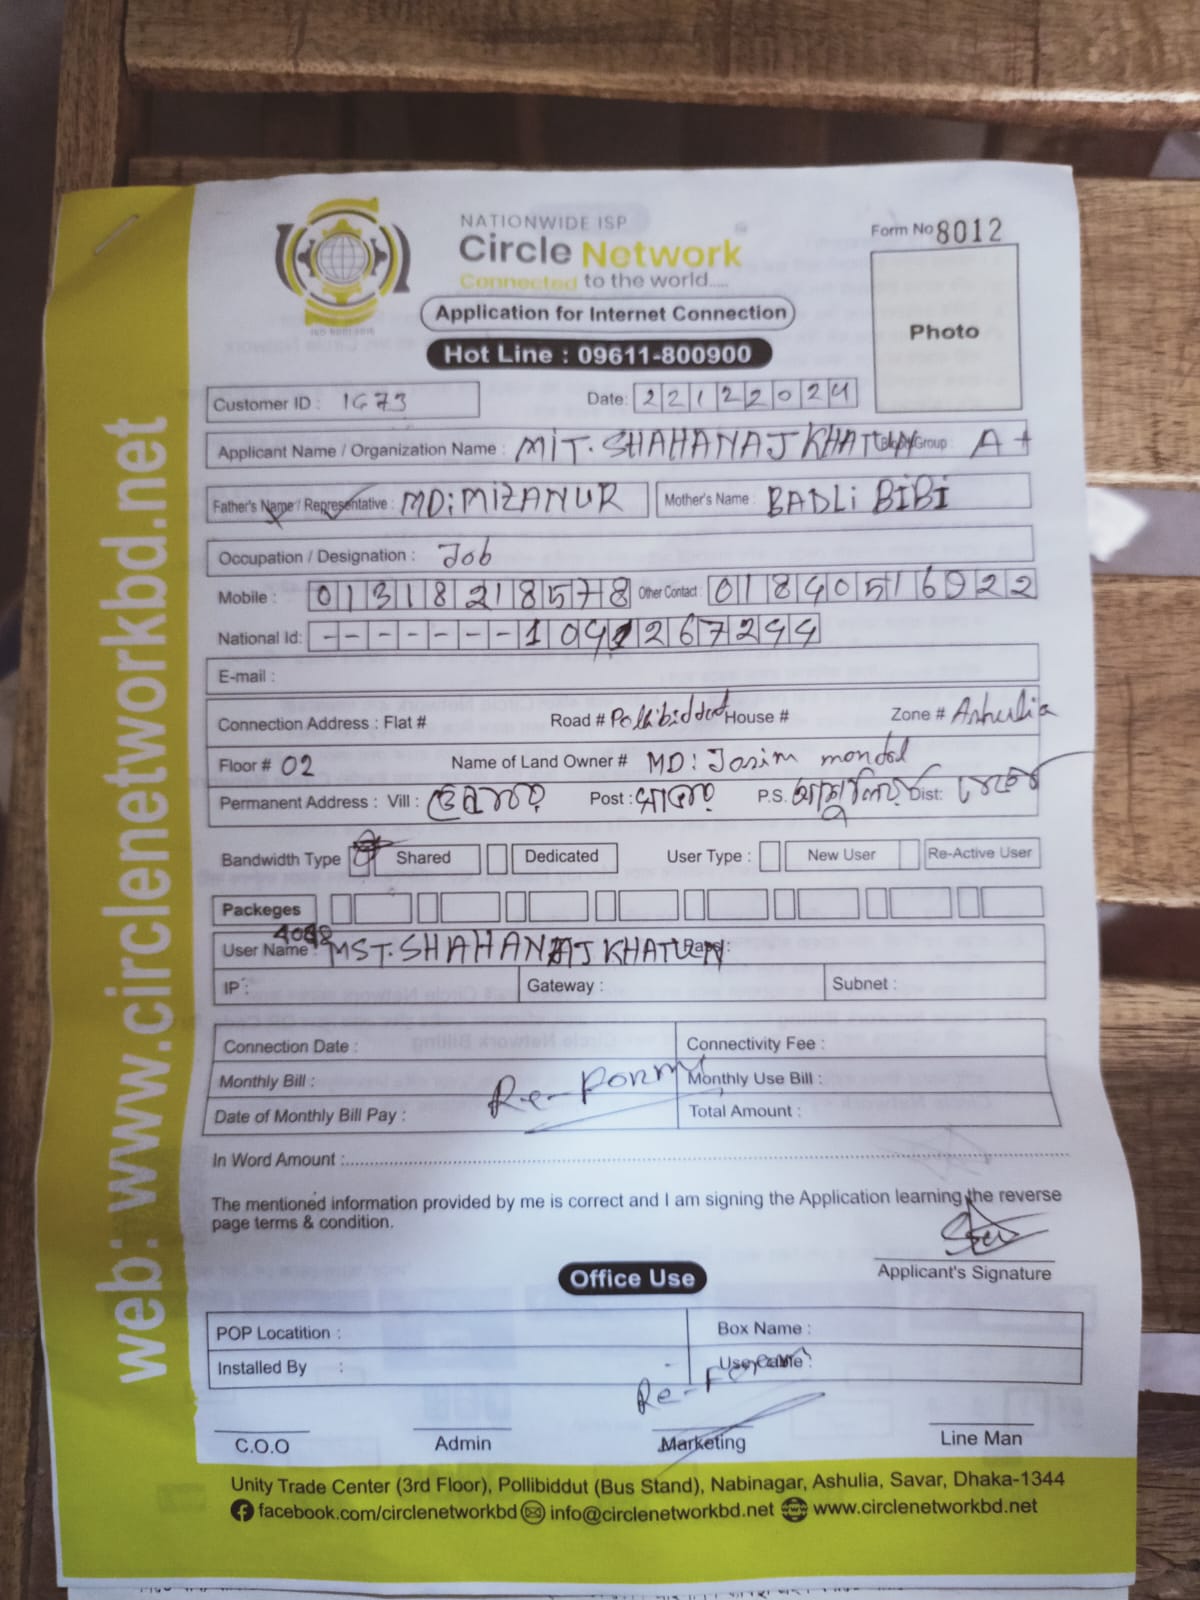 NATIONWIDE ISP
Circle Network
Connected to the world.....
Form No 8012
Photo
Application for Internet Connection
Hot Line : 09611-800900
Customer ID : 1673
Date: 22122024
Applicant Name / Organization Name : MIT. SHAHANAJ KHATUN Blood Group : A+
Father's Name / Representative : MD: MIZANUR Mother's Name : BADLi BIBI
Occupation / Designation : Job
Mobile : 01318218578 Other Contact : 01840516922
National Id: -------1091267299
E-mail :
Connection Address : Flat # Road # Pollibiddut House # Zone # Ashulia
Floor # 02 Name of Land Owner # MD: Jasim mondal
Permanent Address : Vill : Post : P.S. Dist:
Bandwidth Type Shared Dedicated User Type : New User Re-Active User
Packeges
User Name : MST. SHAHANAJ KHATUN
IP : Gateway : Subnet :
Connection Date : Connectivity Fee :
Monthly Bill : Re-Form Monthly Use Bill :
Date of Monthly Bill Pay : Total Amount :
In Word Amount :
The mentioned information provided by me is correct and I am signing the Application learning the reverse
page terms & condition.
Applicant's Signature
Office Use
POP Locatition : Box Name :
Installed By :
Re-Form
C.O.O Admin Marketing Line Man
Unity Trade Center (3rd Floor), Pollibiddut (Bus Stand), Nabinagar, Ashulia, Savar, Dhaka-1344
facebook.com/circlenetworkbd info@circlenetworkbd.net www.circlenetworkbd.net
web: www.circlenetworkbd.net